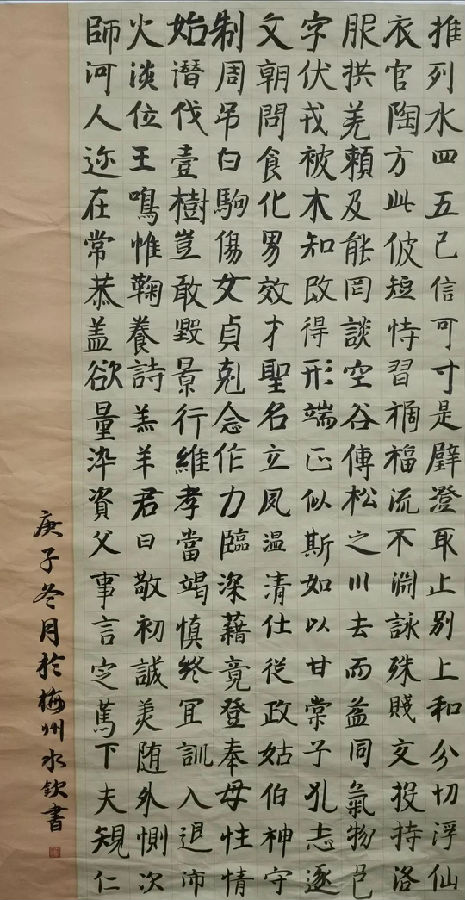 推列水四五己信可寸是璧澄取止别上和分切浮仙
衣官陶方此彼短恃習禍福流不淵詠殊賤交投持洛
服拱羌賴及能罔談空谷傳松之川去而益同氣物邑
字伏戎被木知改得形端正似斯如以甘棠子孔志逐
文朝問食化男效才聖名立夙温清仕從政姑伯神守
制周吊白駒傷女貞剋念作力臨深藉竟登奉母性情
始潛伐壹樹豈敢毀景行維孝當竭慎終宜訓入退沛
火淡位王鳴惟鞠養詩羔羊君曰敬初誠美随外惻次
師河人迩在常恭盖欲量染資父事言定篤下夫規仁
庚子冬月於梅州水欽書